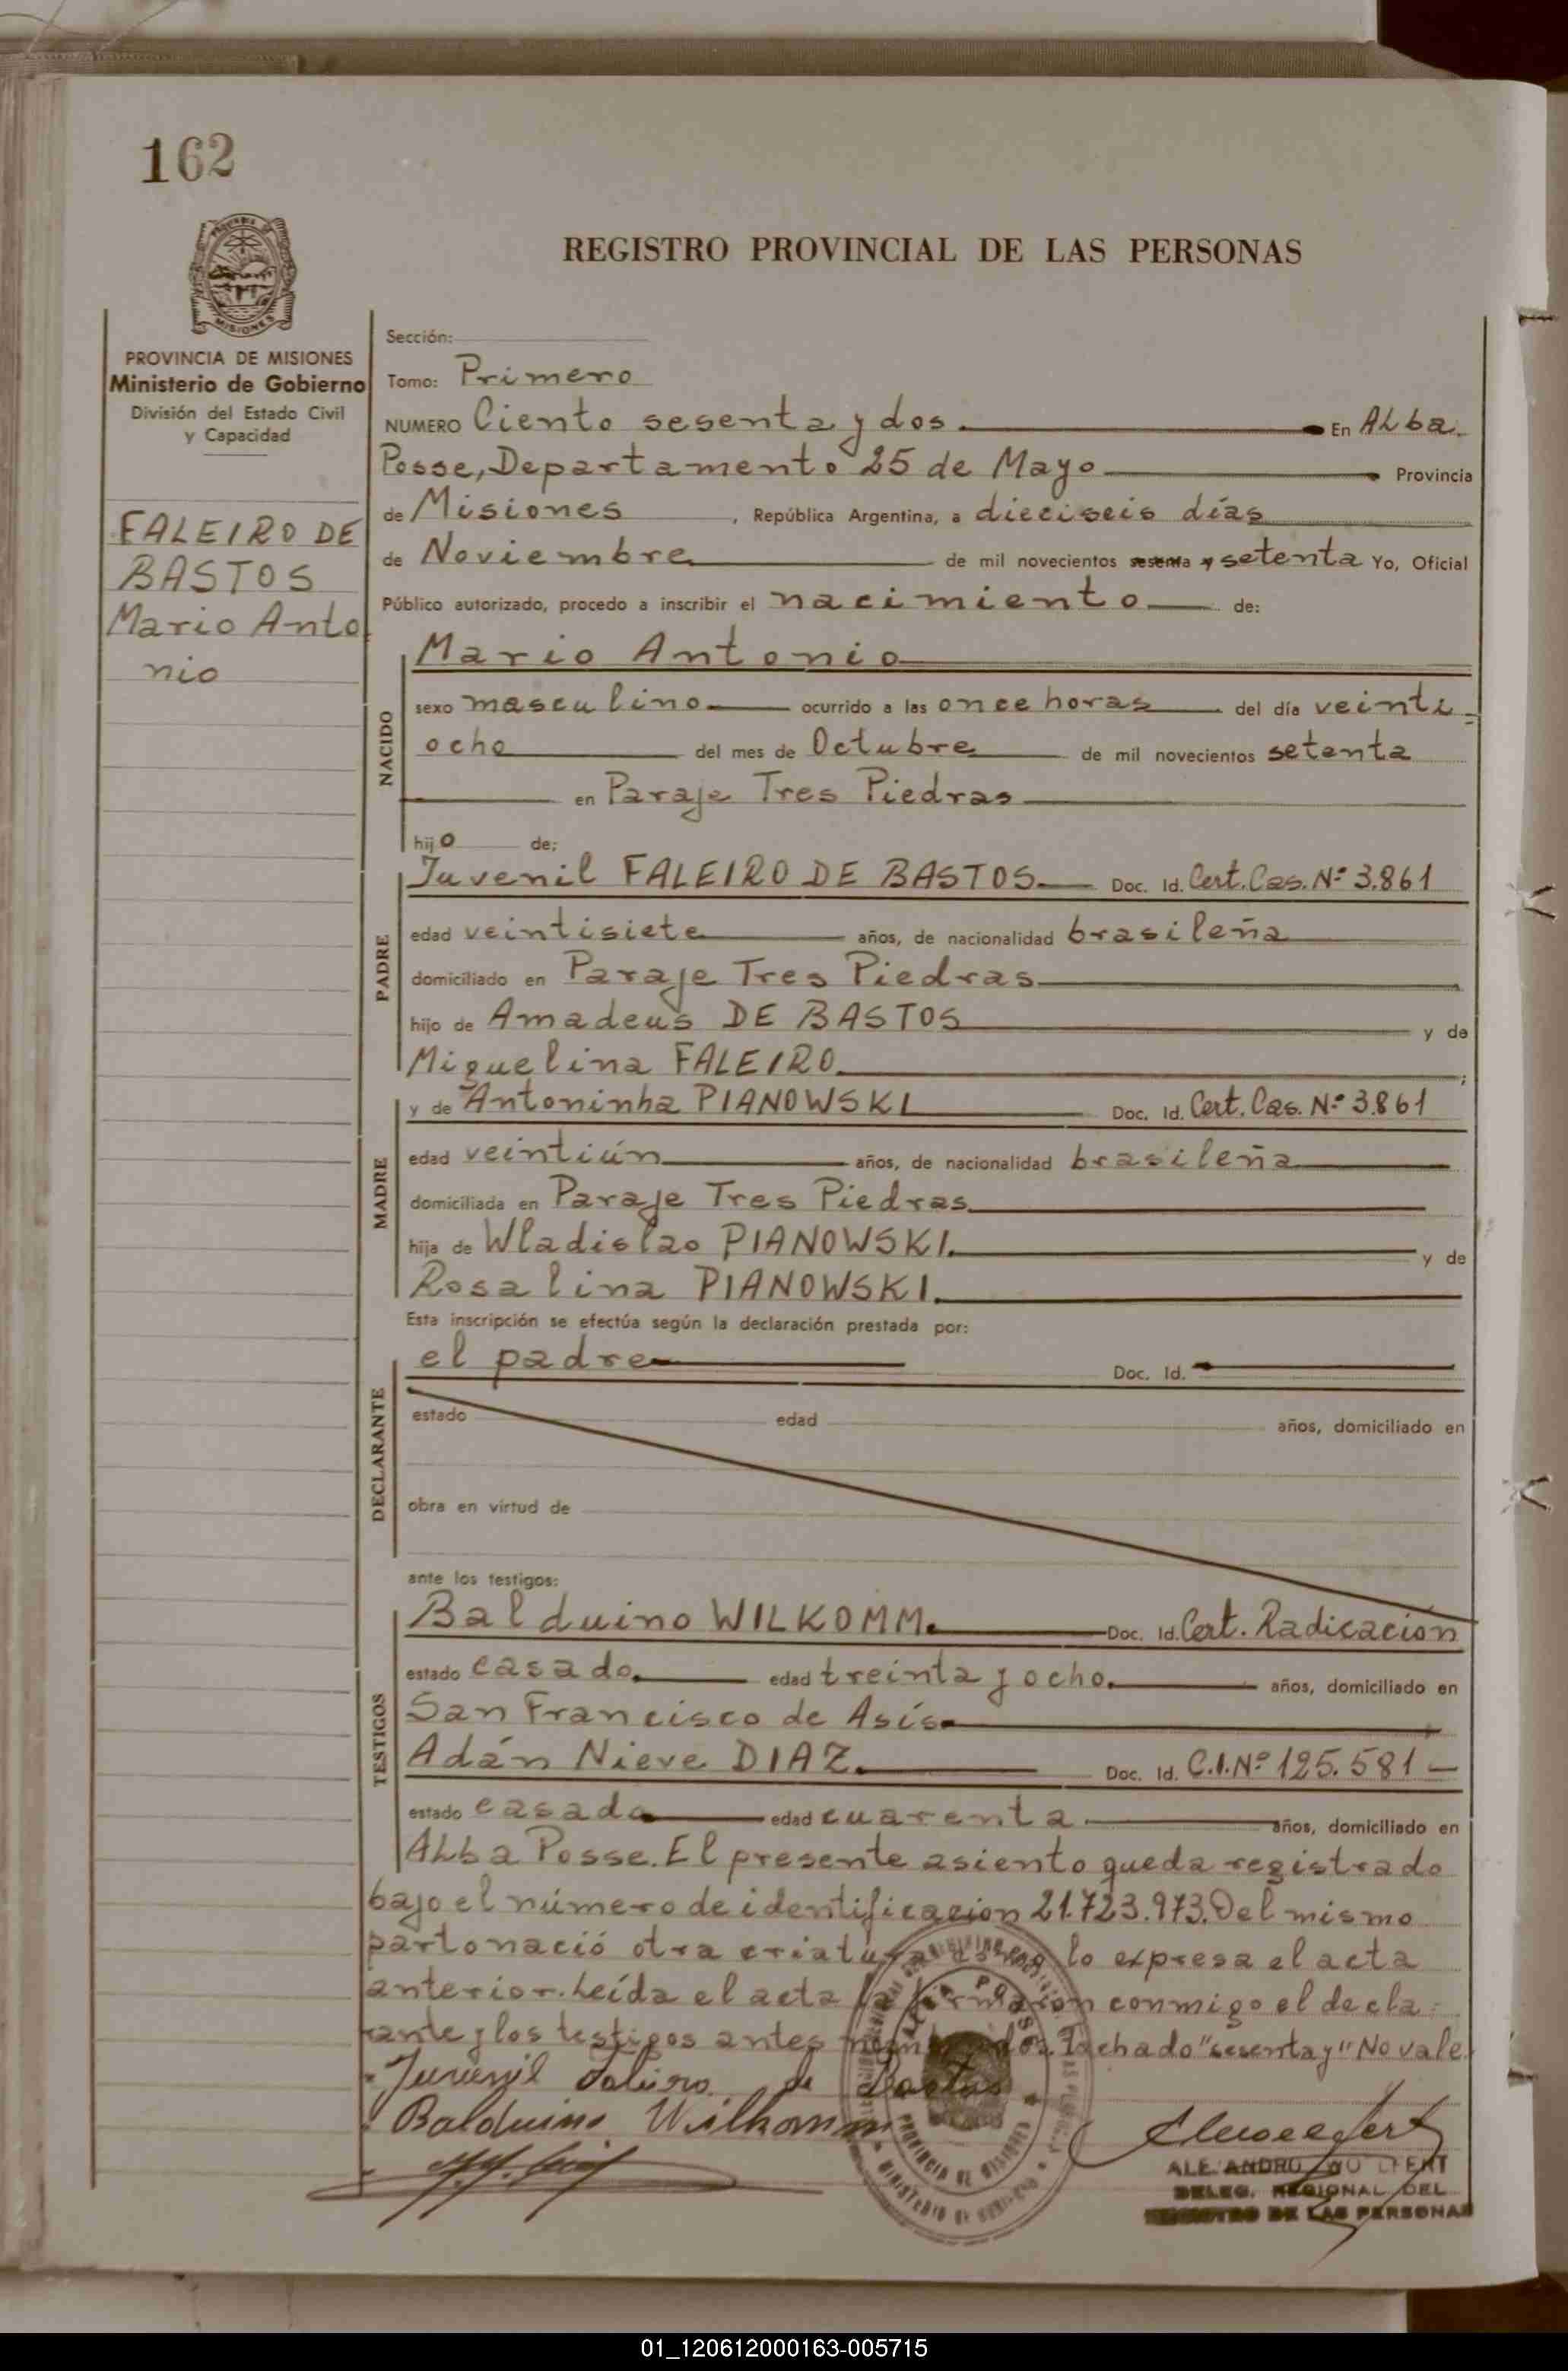 162
REGISTRO PROVINCIAL DE LAS PERSONAS
MISIONES
PROVINCIA DE MISIONES
Ministerio de Gobierno
División del Estado Civil
y Capacidad
FALEIRO DE
BASTOS
Mario Anto
nio
Sección:
Tomo: Primero
NUMERO Ciento sesenta y dos. En Alba
Posse, Departamento 25 de Mayo Provincia
de Misiones , República Argentina, a dieciseis días
de Noviembre de mil novecientos sesenta y setenta Yo, Oficial
Público autorizado, procedo a inscribir el nacimiento de:
NACIDO
Mario Antonio
sexo masculino ocurrido a las once horas del día veinti
ocho del mes de Octubre de mil novecientos setenta
en Paraje Tres Piedras
hijo de:
PADRE
Juvenil FALEIRO DE BASTOS Doc. Id. Cert. Cas. Nº 3.861
edad veintisiete años, de nacionalidad brasileña
domiciliado en Paraje Tres Piedras
hijo de Amadeus DE BASTOS y de
Miguelina FALEIRO ;
MADRE
y de Antoninha PIANOWSKI Doc. Id. Cert. Cas. Nº 3861
edad veintiún años, de nacionalidad brasileña
domiciliada en Paraje Tres Piedras
hija de Wladislao PIANOWSKI. y de
Rosalina PIANOWSKI.
Esta inscripción se efectúa según la declaración prestada por:
DECLARANTE
el padre Doc. Id.
estado edad años, domiciliado en
obra en virtud de
ante los testigos:
TESTIGOS
Balduino WILKOMM. Doc. Id. Cert. Radicación
estado casado. edad treinta y ocho. años, domiciliado en
San Francisco de Asís
Adán Nieve DIAZ. Doc. Id. C.I.Nº 125.581
estado casado edad cuarenta años, domiciliado en
Alba Posse. El presente asiento queda registrado
bajo el número de identificación 21.723.973. Del mismo
parto nació otra criatura como lo expresa el acta
anterior. Leída el acta la firmaron conmigo el decla=
rante y los testigos antes nombrados. Tachado "sesenta y" No vale.
Juvenil Faleiro de Bastos
Balduino Wilkomm
PROVINCIA DE MISIONES
ALEJANDRO WOLFERT
DELEG. REGIONAL DEL
REGISTRO DE LAS PERSONAS
01_120612000163-005715